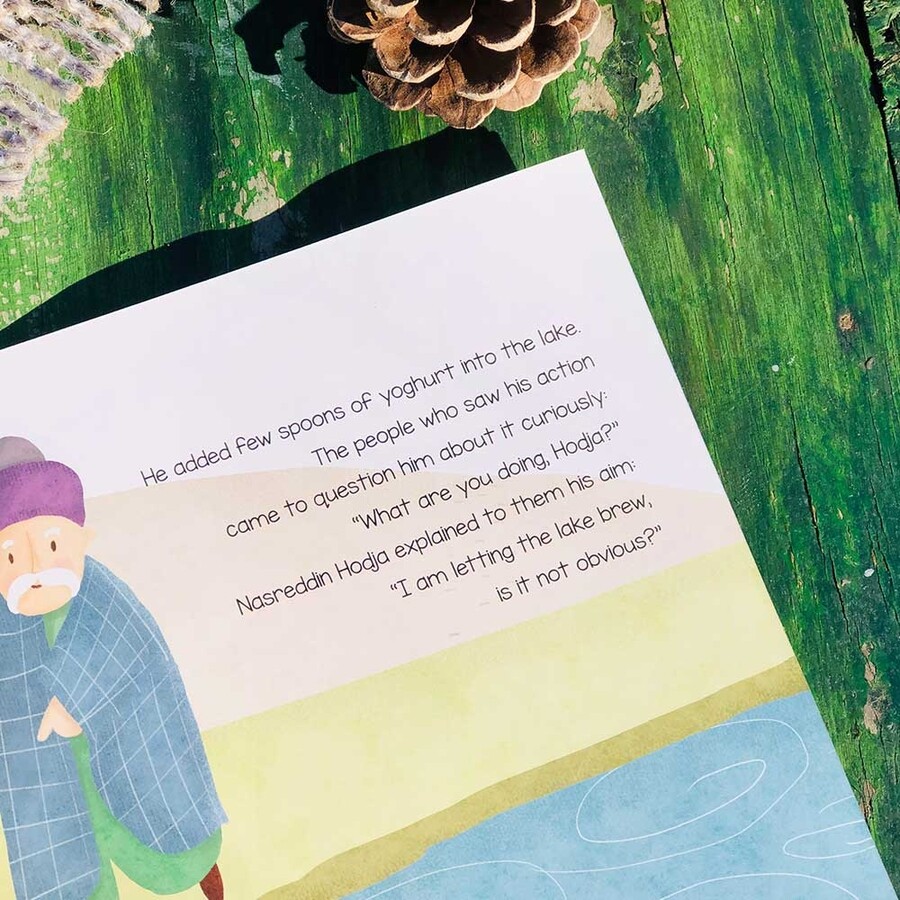 He added few spoons of yoghurt into the lake.
The people who saw his action
came to question him about it curiously:
“What are you doing, Hodja?”
Nasreddin Hodja explained to them his aim:
“I am letting the lake brew,
is it not obvious?”